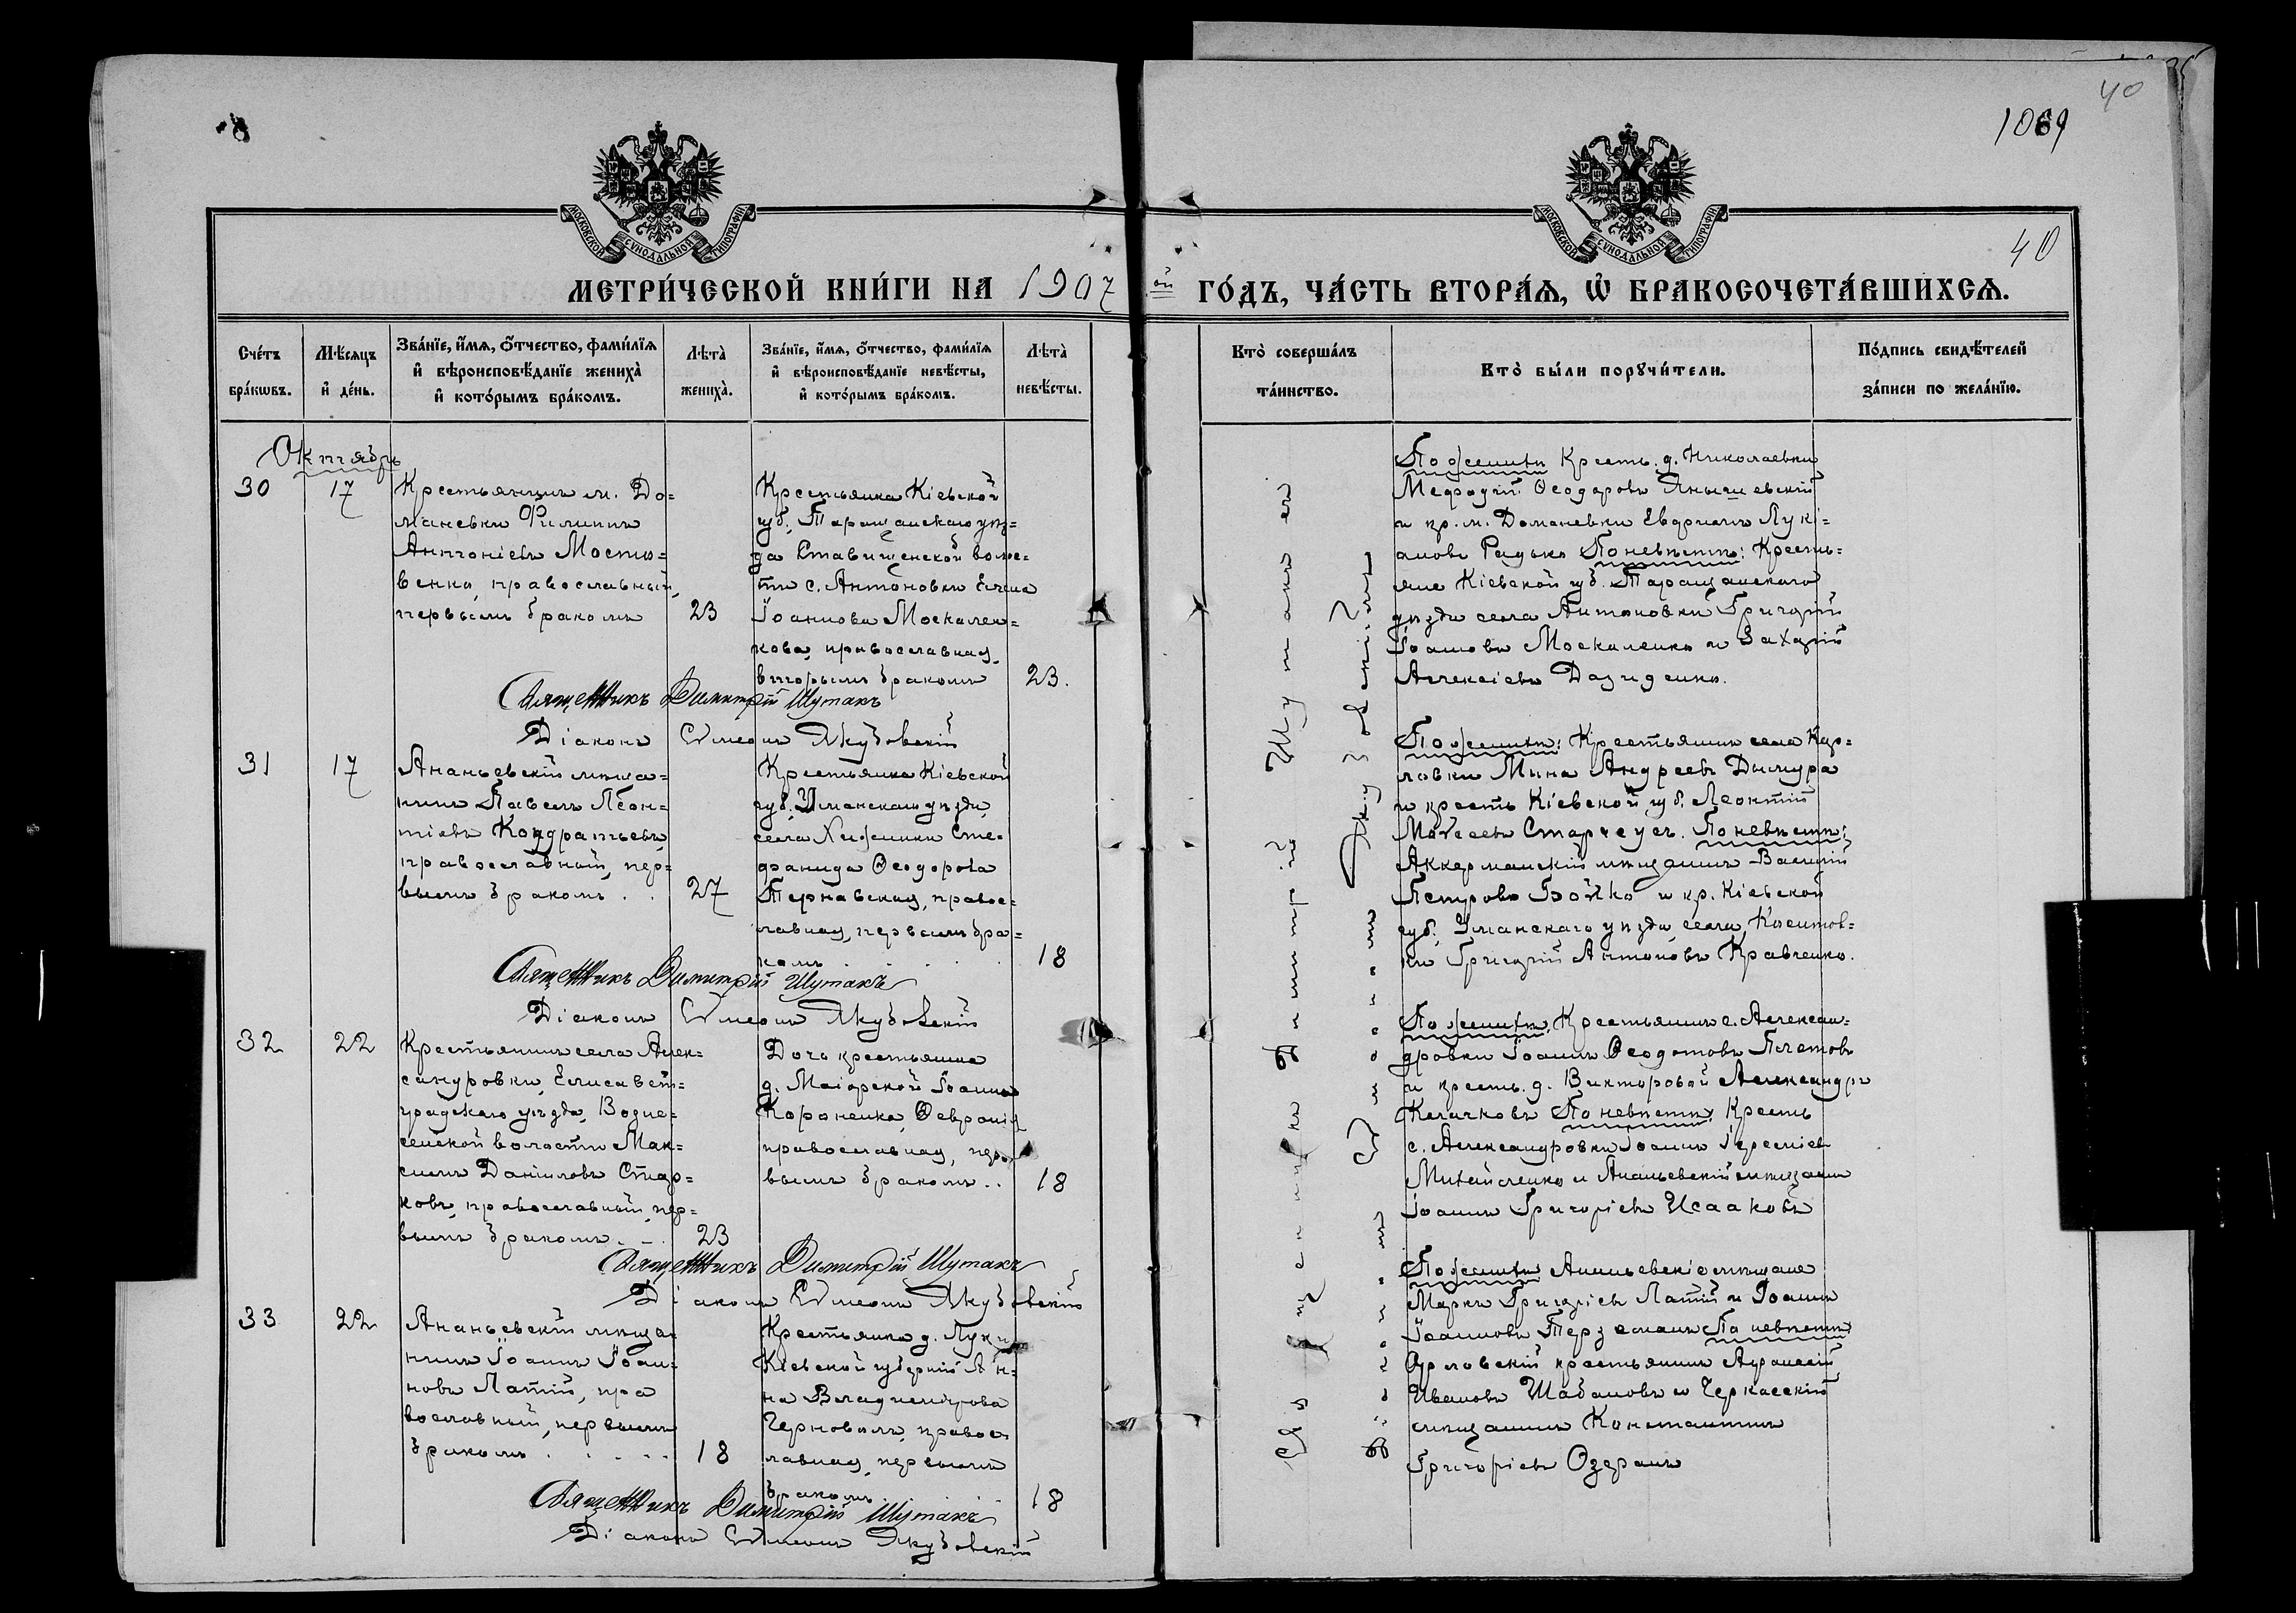 40
1069
МОСКОВСКОЙ СѴНОДАЛЬНОЙ ТИПОГРАФІИ
МОСКОВСКОЙ СѴНОДАЛЬНОЙ ТИПОГРАФІИ
40
МЕТРИ́ЧЕСКОЙ КНИ́ГИ НА 1907 ой ГО́ДЪ, ЧА́СТЬ ВТОРА́Ѧ, Ѿ БРАКОСОЧЕТА́ВШИХСѦ.
Сче́тъ
бра́кѡвъ.
Мѣ́сяцъ
и҆ де́нь.
Зва́нїе, и҆́мя, о҆́тчество, фами́лїя
и҆ вѣроисповѣ́данїе жениха̀
и҆ кото́рымъ бра́комъ.
Лѣта̀
жениха̀.
Зва́нїе, и҆́мя, о҆́тчество, фами́лїя
и҆ вѣроисповѣ́данїе невѣ́сты,
и҆ кото́рымъ бра́комъ.
Лѣта̀
невѣ́сты.
Кто̀ соверша́лъ
та́инство.
Кто̀ бы́ли порꙋчи́тели.
По́дпись свидѣ́телей
за́писи по жела́нїю.
Октябрь
30
17
Крестьянинъ м. До=
маневки Филиппъ
Антоніевъ Мосто=
венко, православный,
первымъ бракомъ
23
Крестьянка Кіевской
губ. Таращанскаго уѣз=
да Ставищенской воло=
сти с. Антоновки Елена
Іоаннова Москален=
кова, православная,
вторымъ бракомъ
23.
Священникъ Димитрій Шутакъ
Діаконъ Симеонъ Якубовскій
По женихѣ Кресть. д. Николаевки
Мефодій Ѳеодоровъ Янышевскій
и кр. м. Доманевки Евфримъ Лукі=
ановъ Радько По невѣстѣ: Кресть=
яне Кіевской губ. Таращанскаго
уѣзда села Антоновки Григорій
Іоанновъ Москаленко и Захарій
Алексіевъ Давиденко.
31
17
Ананьевскій мѣща=
нинъ Павелъ Леон=
тіевъ Кондратьевъ,
православный, пер=
вымъ бракомъ . .
27
Крестьянка Кіевской
губ. Уманскаго уѣзда,
села Хижинки Сте=
фанида Ѳеодорова
Тернавская, правос=
лавная, первымъ бра=
комъ . . . .
18
Священникъ Димитрій Шутакъ
Діаконъ Симеонъ Якубовскій
По женихѣ: Крестьянинъ села Кар=
ловки Мина Андреевъ Дымура
и кресть Кіевской губ. Леонтій
Моѵсеевъ Старчеусъ. По невѣстѣ:
Аккерманскій мѣщанинъ Василій
Петровъ Бойко и кр. Кіевской
губ. Уманскаго уѣзда, села
ки Григорій Антоновъ Кравченко.
32
22
Крестьянинъ села Алек=
сандровки, Елисавет=
градскаго уѣзда, Возне=
сенской волости Мак=
симъ Даніиловъ Стар=
ковъ, православный, пер=
вымъ бракомъ . .
23
Дочь крестьянина
д. Маіорской Іоанна
Короненка, Ѳевронія
православная, пер=
вымъ бракомъ . .
18
Священникъ Димитрій Шутакъ
Діаконъ Симеонъ Якубовскій
По женихѣ, Крестьянинъ с. Алексан=
дровки Іоаннъ Ѳеодотовъ Плетовъ
и кресть. д. Викторовой Александръ
Клячковъ По невѣстѣ, Кресть
с. Александровки Іоаннъ Іереміевъ
Михайленко и Ананьевскій мѣщанинъ
Іоаннъ Григоріевъ Исааковъ
33
22
Ананьевскій мѣща=
нинъ Іоаннъ Іоан=
новъ Латій, пра
вославный, первымъ
бракомъ . . . . .
18
Крестьянка д.
Кіевской губерніи Ан=
на Владимірова
Черноволъ, правос
лавная, первымъ
бракомъ . . . .
18
Священникъ Димитрій Шутакъ
Діаконъ Симеонъ Якубовскій
По женихѣ Ананьевскіе мѣщане
Маркъ Григоріевъ Латій и Іоаннъ
Іоанновъ Терземанъ По невѣстѣ
Орловскій крестьянинъ Аѳанасій
Ивановъ Шабановъ и Черкасскій
мѣщанинъ Константинъ
Григоріевъ Озеранъ
Священникъ Димитрій Шутакъ
Діаконъ Симеонъ Якубовскій